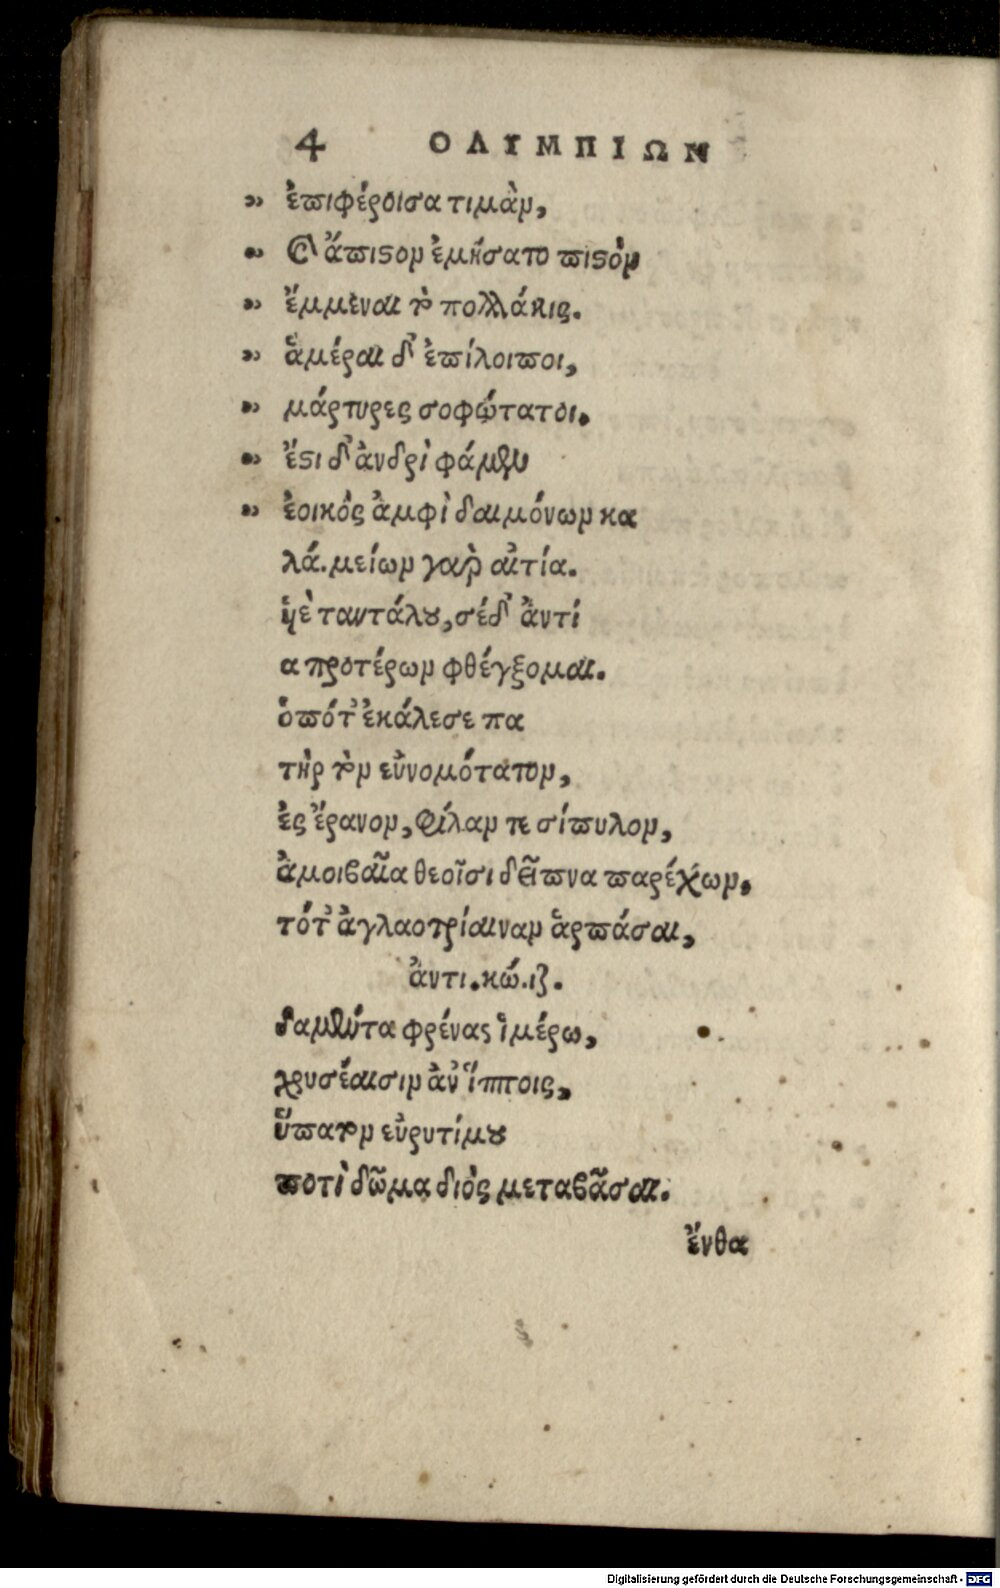 4 ΟΛΥΜΠΙΩΝ
» ἐπιφέροισα τιμὰν,
» Καὶ ἄπιστον ἐμήσατο πιστὸν
» ἔμμεναι τὸ πολλάκις.
» ἁμέραι δ' ἐπίλοιποι,
» μάρτυρες σοφώτατοι.
» ἔστι δ' ἀνδρὶ φάμεν
» ἐοικὸς ἀμφὶ δαιμόνων κα
λά. μείων γαρ αἰτία.
ὑὲ ταντάλου, σέ δ' ἀντί
α προτέρων φθέγξομαι.
ὁπότ' ἐκάλεσε πα
τὴρ τὸν εὐνομότατον,
ἐς ἔρανον, φίλαν τε σίπυλον,
ἀμοιβαῖα θεοῖσι δεῖπνα παρέχων,
τότ' ἀγλαοτρίαιναν ἁρπάσαι,
ἀντι. κώ. ιζ.
δαμέντα φρένας ἱμέρω,
χρυσέαισιν ἀν' ἵπποις,
ὕπατον εὐρυτίμου
ποτὶ δῶμα διὸς μεταβᾶσαι.
ἔνθα
Digitalisierung gefördert durch die Deutsche Forschungsgemeinschaft - DFG